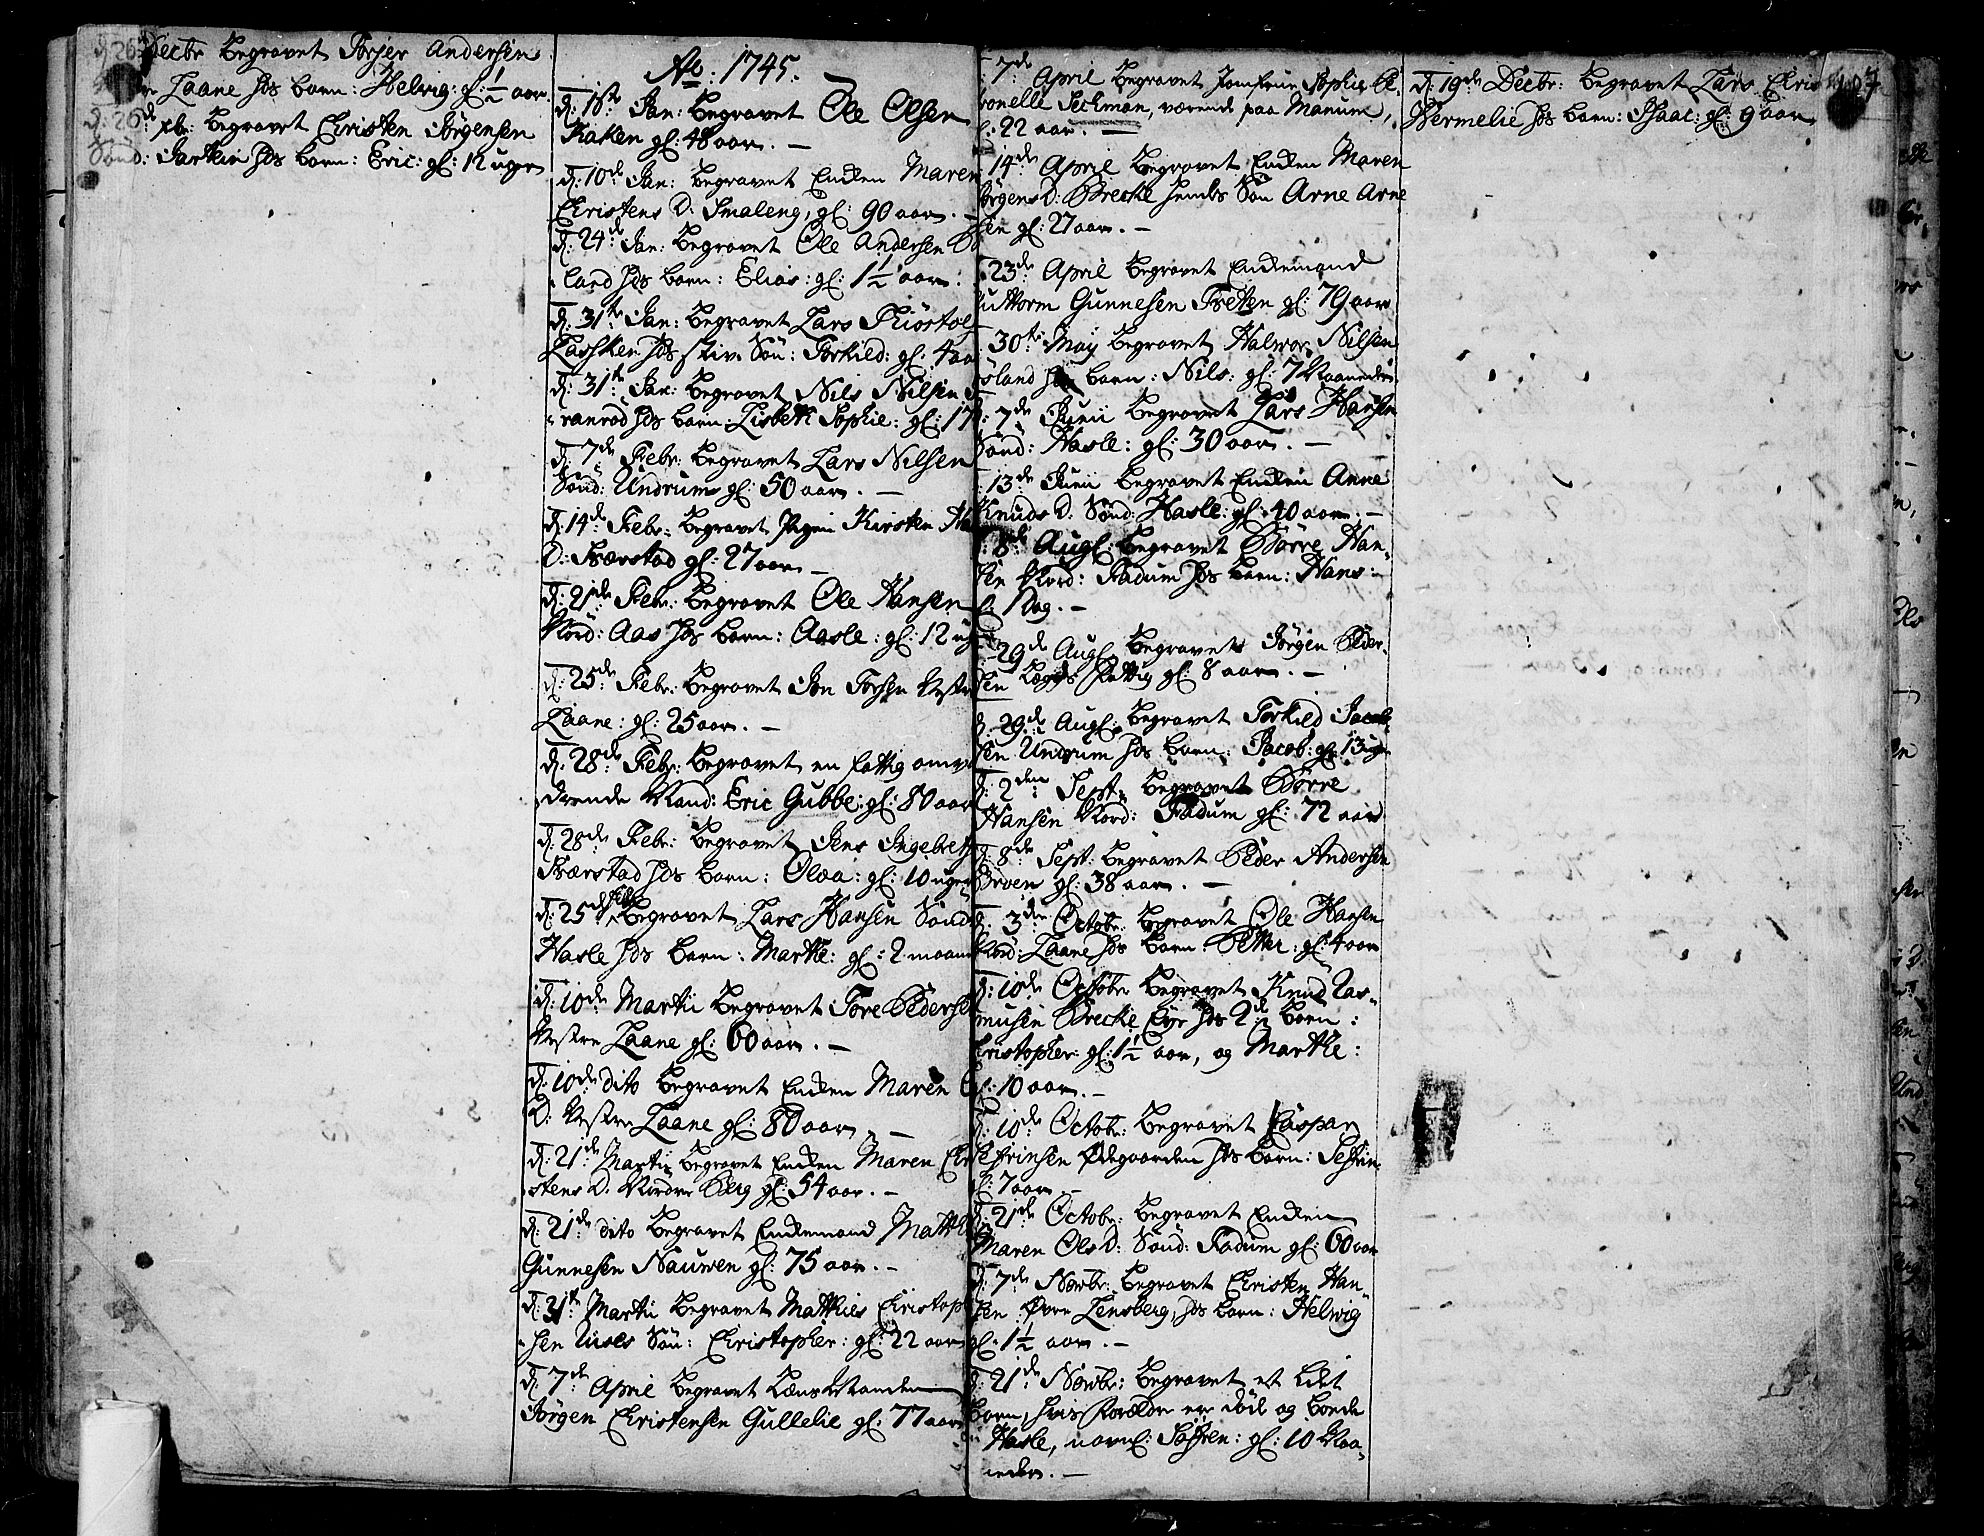 d: 26 Decbr begravet Torjer Andersen
Laane hds barn: Helwig: gl: 1/2 aar
d: 26de xbr: begravet Christen Jørgensen
Sønd: Jartein hds barn: Eric: gl: 12 uger
Ao: 1745.
d: 1ste Jan: begravet Ole Olsen
Raken gl: 48 aar. —
d: 10de Jan: begravet Encken Maren
Christens D: Smaleng, gl: 90 aar. —
d: 24de Jan: begravet Ole Andersen
land hds barn: Elias: gl: 1 1/2 aar.
d: 31te Jan: begravet Lars Thiøstol
hds stiv Søn: Torkild: gl: 4 aar
d: 31te Jan: begravet Nils Nilsen
ranrød hds barn Lisbeth Sophie: gl: 17
d: 7de Febr: begravet Lars Nilsen
Sønd: Undrum gl: 50 aar. —
d: 14de Febr: begravet Pigen Kirsten
D: Bærstad gl: 27 aar —
d: 21de Febr: begravet Ole Hansen
Nord: Aas hds barn: Aasle: gl: 12 ug
d: 25de Febr: begravet Jon Torsen Vestre
Laane: gl: 25 aar. —
d: 28de Febr: begravet en fattig omva
drende Mand: Eric Gubbe: gl: 80 aar
d: 28de Febr: begravet Jens Ingebrets
Bærstad hds barn: Oloa: gl: 10 uger
d: 25de Febr begravet Lars Hansen Sønd
Hasle hds barn: Marthe: gl: 2 maan
d: 10de Martii begravet Tore Pederse
Vestre Laane gl: 60 aar. —
d: 10de dito begravet Encken Maren
D: Vestre Laane gl: 80 aar —
d: 21de Martii begravet Encken Maren Chri
stens D: Nordre Berg gl: 54 aar. —
d: 21de dito begravet Enckemand Matth
Gunnesen Nauwen gl: 75 aar. —
d: 31te Martii begravet Matthies Christoph
sen Søn: Christopher: gl: 22 aar
d: 7de April begravet Lens Manden
Jørgen Christensen Gullelie gl: 77 aar
7de April begravet Jomfrue Sophie
ronelle Seckman, værende paa Manum,
gl: 22 aar. —
14de April begravet Encken Maren
Jørgens D: Brecke hendes Søn Arne Arne
sen gl: 27 aar. —
23de April begravet Enckemand
Guttorm Gunnesen Fretten gl: 79 aar
30te May begravet Halwor Nilsen
land hds barn: Nils: gl: 7 Maaneder
d: 7de Junii begravet Lars Hansen
Sønd: Hasle: gl: 30 aar. —
13de Junii begravet Encken Anne
Knuds D: Sønd: Hasle: gl: 40 aar. —
8de Augl: begravet Børre Han-
sen Nord: Fadum hds barn: Hans:
gl: 1 Dag. —
29de Augl: begravet Jørgen Peder-
sen Lægds fattig gl: 8 aar. —
d: 29de Augl: begravet Torkild Jacob
sen Undrum hds barn: Jacob: gl: 13 uger
d: 2den Sept: begravet Børre
Hansen Nord: Fadum gl: 72 aar
d: 8de Sept: begravet Peder Andersen
gl: 38 aar. —
d: 3de Octobr: begravet Ole Hansen
Nord: Laane hds barn: Petter: gl: 4 aar
d: 10de Octobr begravet Knud Ras-
musen Brecke Eye hds 2de børn:
Christopher: gl: 1 1/2 aar, og Marthe:
gl: 10 aar. —
d: 10de Octobr: begravet Caspar
Sefrinsen Ødegaarden hds barn: Sefrin
gl: 7 aar —
d: 21de Octobr: begravet Encken
Maren Ols D: Sønd: Fadum gl: 60 aar
d: 7de Novbr: begravet Christen Han-
sen Øvre Lensberg, hds barn: Helwig
gl: 1 1/2 aar. —
d: 21de Novbr: begravet et lidet
barn, hvis Forældre er død og boede
Hasle, navnl: Søfren: gl: 10 Maa-
neder. —
d: 19de Decbr: begravet Lars Chris
Hermelie hds barn: Isaac: gl: 9 aar
107